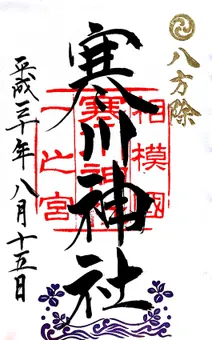 八方除
相模國
寒川神社
一之宮
寒川神社
平成三十年八月十五日